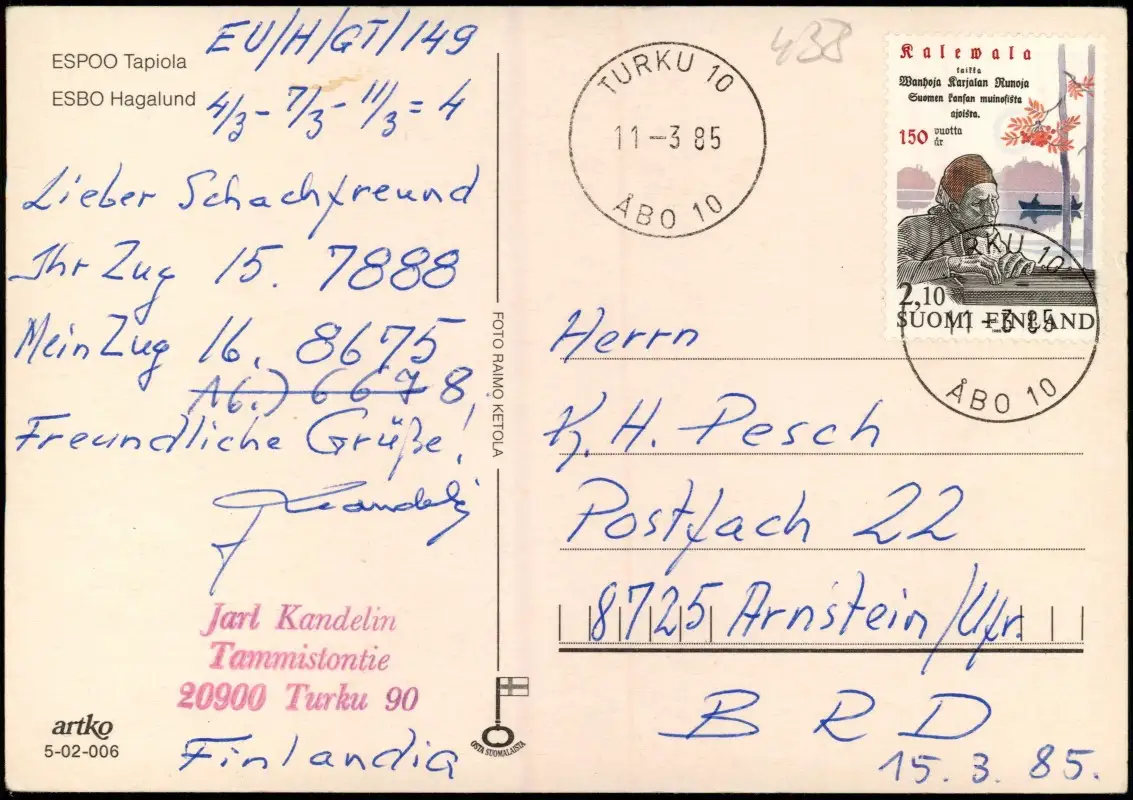 ESPOO Tapiola
ESBO Hagalund
EU/H/GT/149
4/3 - 7/3 - 11/3 = 4
Lieber Schachfreund
Ihr Zug 15. 7888
Mein Zug 16. 8675
16.) 6678
Freundliche Grüße!
J Kandelin
Jarl Kandelin
Tammistontie
20900 Turku 90
Finlandia
artko
5-02-006
FOTO RAIMO KETOLA
OSTA SUOMALAISTA
438
TURKU 10
11-3 85
ÅBO 10
Kalewala
taikka
Wanhoja Karjalan Runoja
Suomen kansan muinosista
ajoista.
150 vuotta
år
2,10
SUOMI FINLAND
TURKU 10
11-3 85
ÅBO 10
Herrn
K. H. Pesch
Postfach 22
8725 Arnstein/Ufr.
B R D
15. 3. 85.